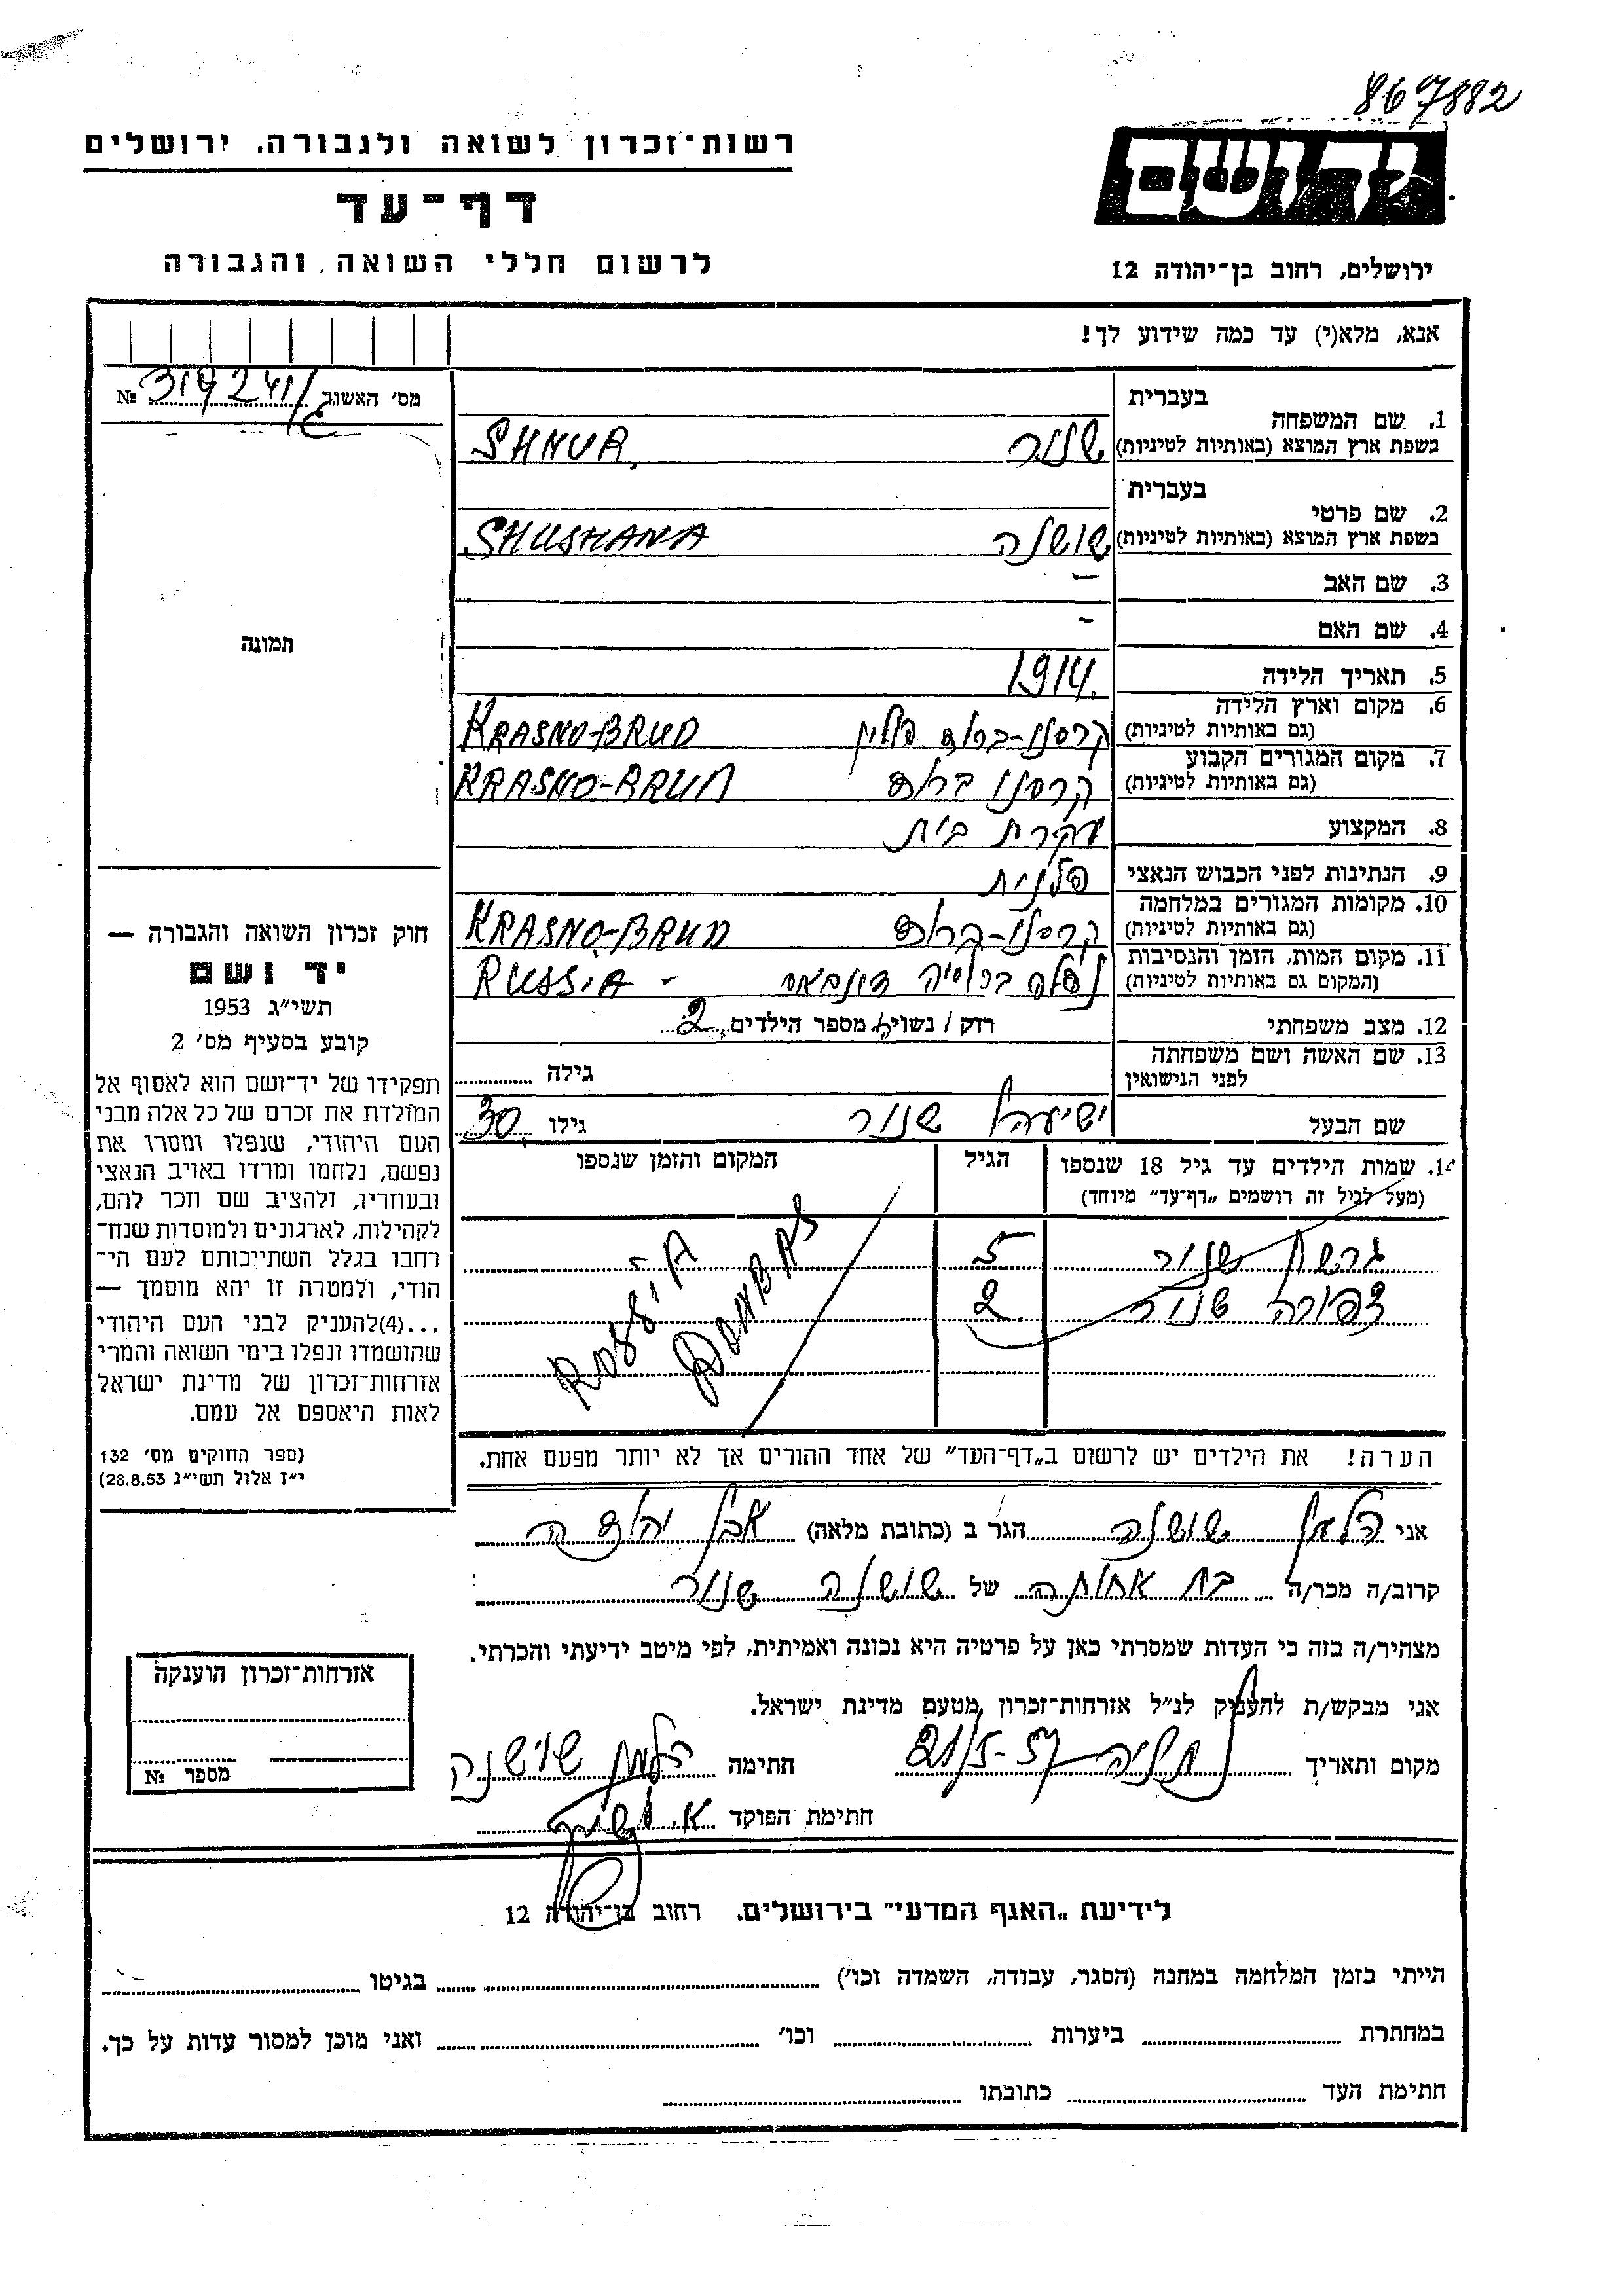 867882
רשות־זכרון לשואה ולגבורה, ירושלים
דף־עד
לרשום חללי השואה והגבורה
יד ושם
ירושלים, רחוב בן־יהודה 12
אנא, מלא(י) עד כמה שידוע לך!
מס׳ האשוב 319241/ №
1. שם המשפחה
בעברית
בשפת ארץ המוצא (באותיות לטיניות) שנור SHNUR
2. שם פרטי
בעברית
בשפת ארץ המוצא (באותיות לטיניות) שושנה SHUSHANA
3. שם האב –
4. שם האם –
5. תאריך הלידה 1914.
6. מקום וארץ הלידה
(גם באותיות לטיניות) קרסנו-ברוד פולין KRASNO-BRUD
7. מקום המגורים הקבוע
(גם באותיות לטיניות) קרסנו ברוד KRASNO-BRUD
8. המקצוע עקרת בית
9. הנתינות לפני הכבוש הנאצי פולנית
10. מקומות המגורים במלחמה
(גם באותיות לטיניות) קרסנו-ברוד KRASNO-BRUD
11. מקום המות, הזמן והנסיבות
(המקום גם באותיות לטיניות) נפלה ברוסיה דונבאס - RUSSIA
12. מצב משפחתי רוק / נשוי ה מספר הילדים 2
13. שם האשה ושם משפחתה
לפני הנישואין גילה
שם הבעל ישיעהו שנור גילו 30
14. שמות הילדים עד גיל 18 שנספו
(מעל לגיל זה רושמים „דף־עד” מיוחד)
הגיל
המקום והזמן שנספו
שנור 5
צפורה שנור 2
DOMBAS
הערה! את הילדים יש לרשום ב„דף־העד” של אחד ההורים אך לא יותר מפעם אחת.
תמונה
חוק זכרון השואה והגבורה —
יד ושם
תשי״ג 1953
קובע בסעיף מס׳ 2
תפקידו של יד־ושם הוא לאסוף אל
המולדת את זכרם של כל אלה מבני
העם היהודי, שנפלו ומסרו את
נפשם, נלחמו ומרדו באויב הנאצי
ובעוזריו, ולהציב שם וזכר להם,
לקהילות, לארגונים ולמוסדות שנח־
רחבו בגלל השתייכותם לעם הי־
הודי, ולמטרה זו יהא מוסמך —
...(4)להעניק לבני העם היהודי
שהושמדו ונפלו בימי השואה והמרי
אזרחות־זכרון של מדינת ישראל
לאות היאספם אל עמם.
(ספר החוקים מס׳ 132
י״ז אלול תשי״ג 28.8.53)
אני שושנה הגר ב (כתובת מלאה) אבן יהודה
קרוב/ה מכר/ה בת אחותה של שושנה שנור
מצהיר/ה בזה כי העדות שמסרתי כאן על פרטיה היא נכונה ואמיתית, לפי מיטב ידיעתי והכרתי.
אני מבקש/ת להעניק לנ״ל אזרחות־זכרון מטעם מדינת ישראל.
מקום ותאריך נתניה 21/5-57 חתימה שושנה
חתימת הפוקד
אזרחות־זכרון הוענקה
מספר №
לידיעת „האגף המדעי” בירושלים. רחוב בן־יהודה 12
הייתי בזמן המלחמה במחנה (הסגר, עבודה, השמדה וכו׳) בגיטו
במחתרת ביערות וכו׳ ואני מוכן למסור עדות על כך.
חתימת העד כתובתו